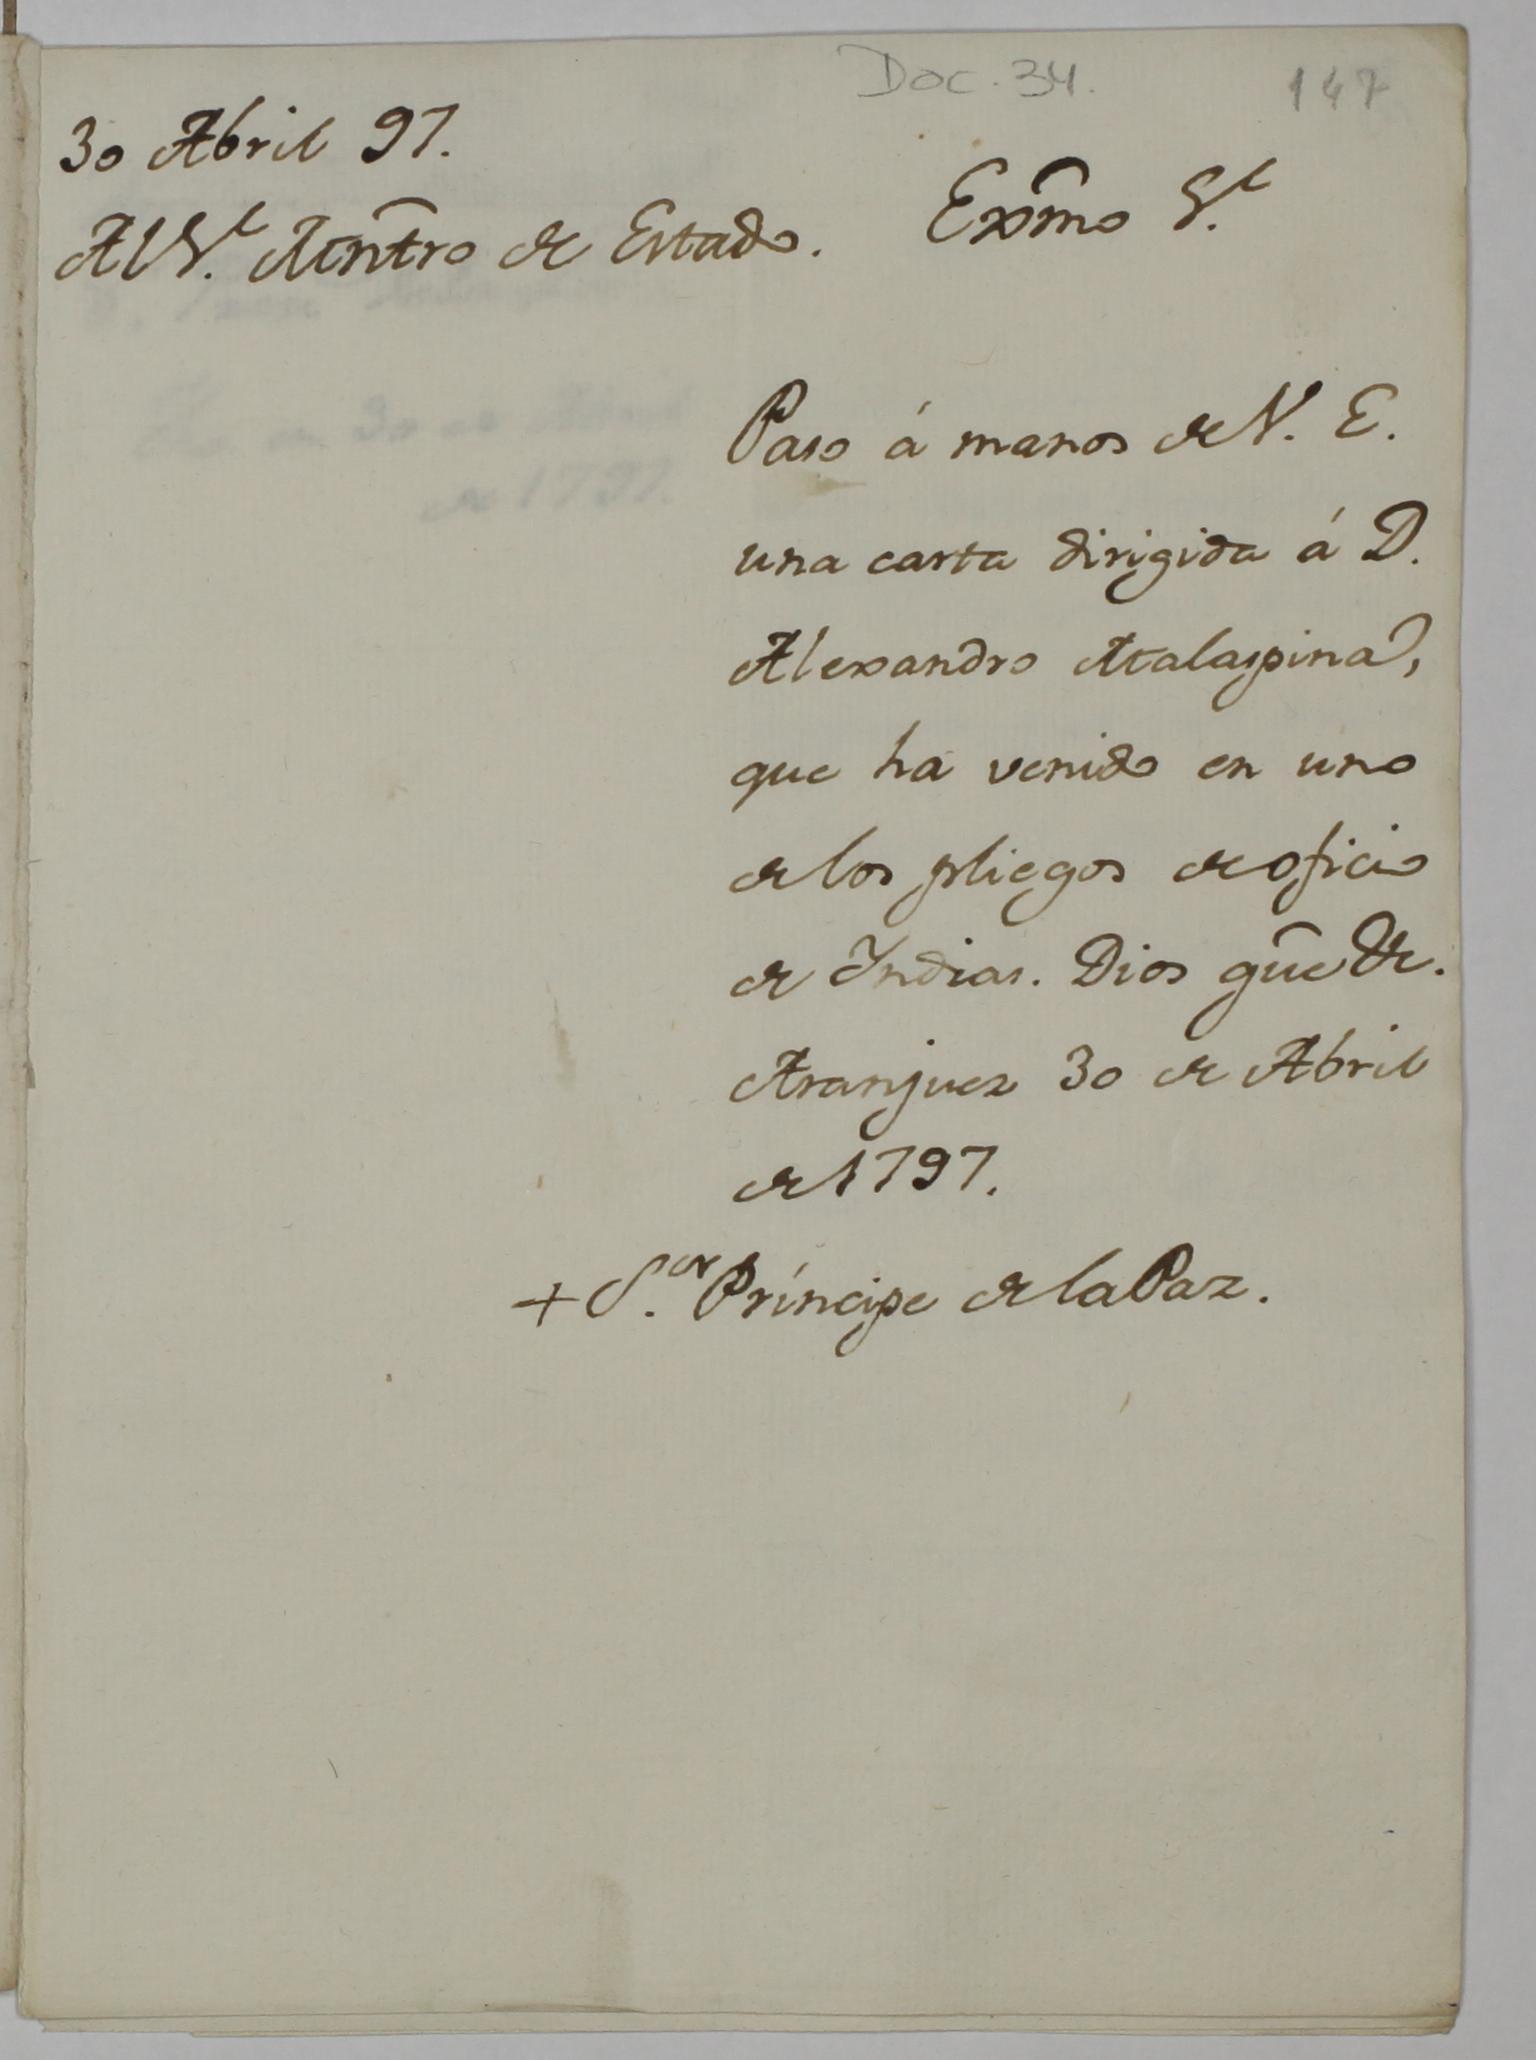 Doc. 34.
147
30 Abril 97.
Al Sr. Mntro de Estado.
Exmo Sr.
Paso á manos de V. E.
una carta dirigida á D.
Alexandro Malaspina,
que ha venido en uno
de los pliegos de oficio
de Indias. Dios gue &c.
Aranjuez 30 de Abril
de 1797.
+ S.or Príncipe de la Paz.
de 1797.